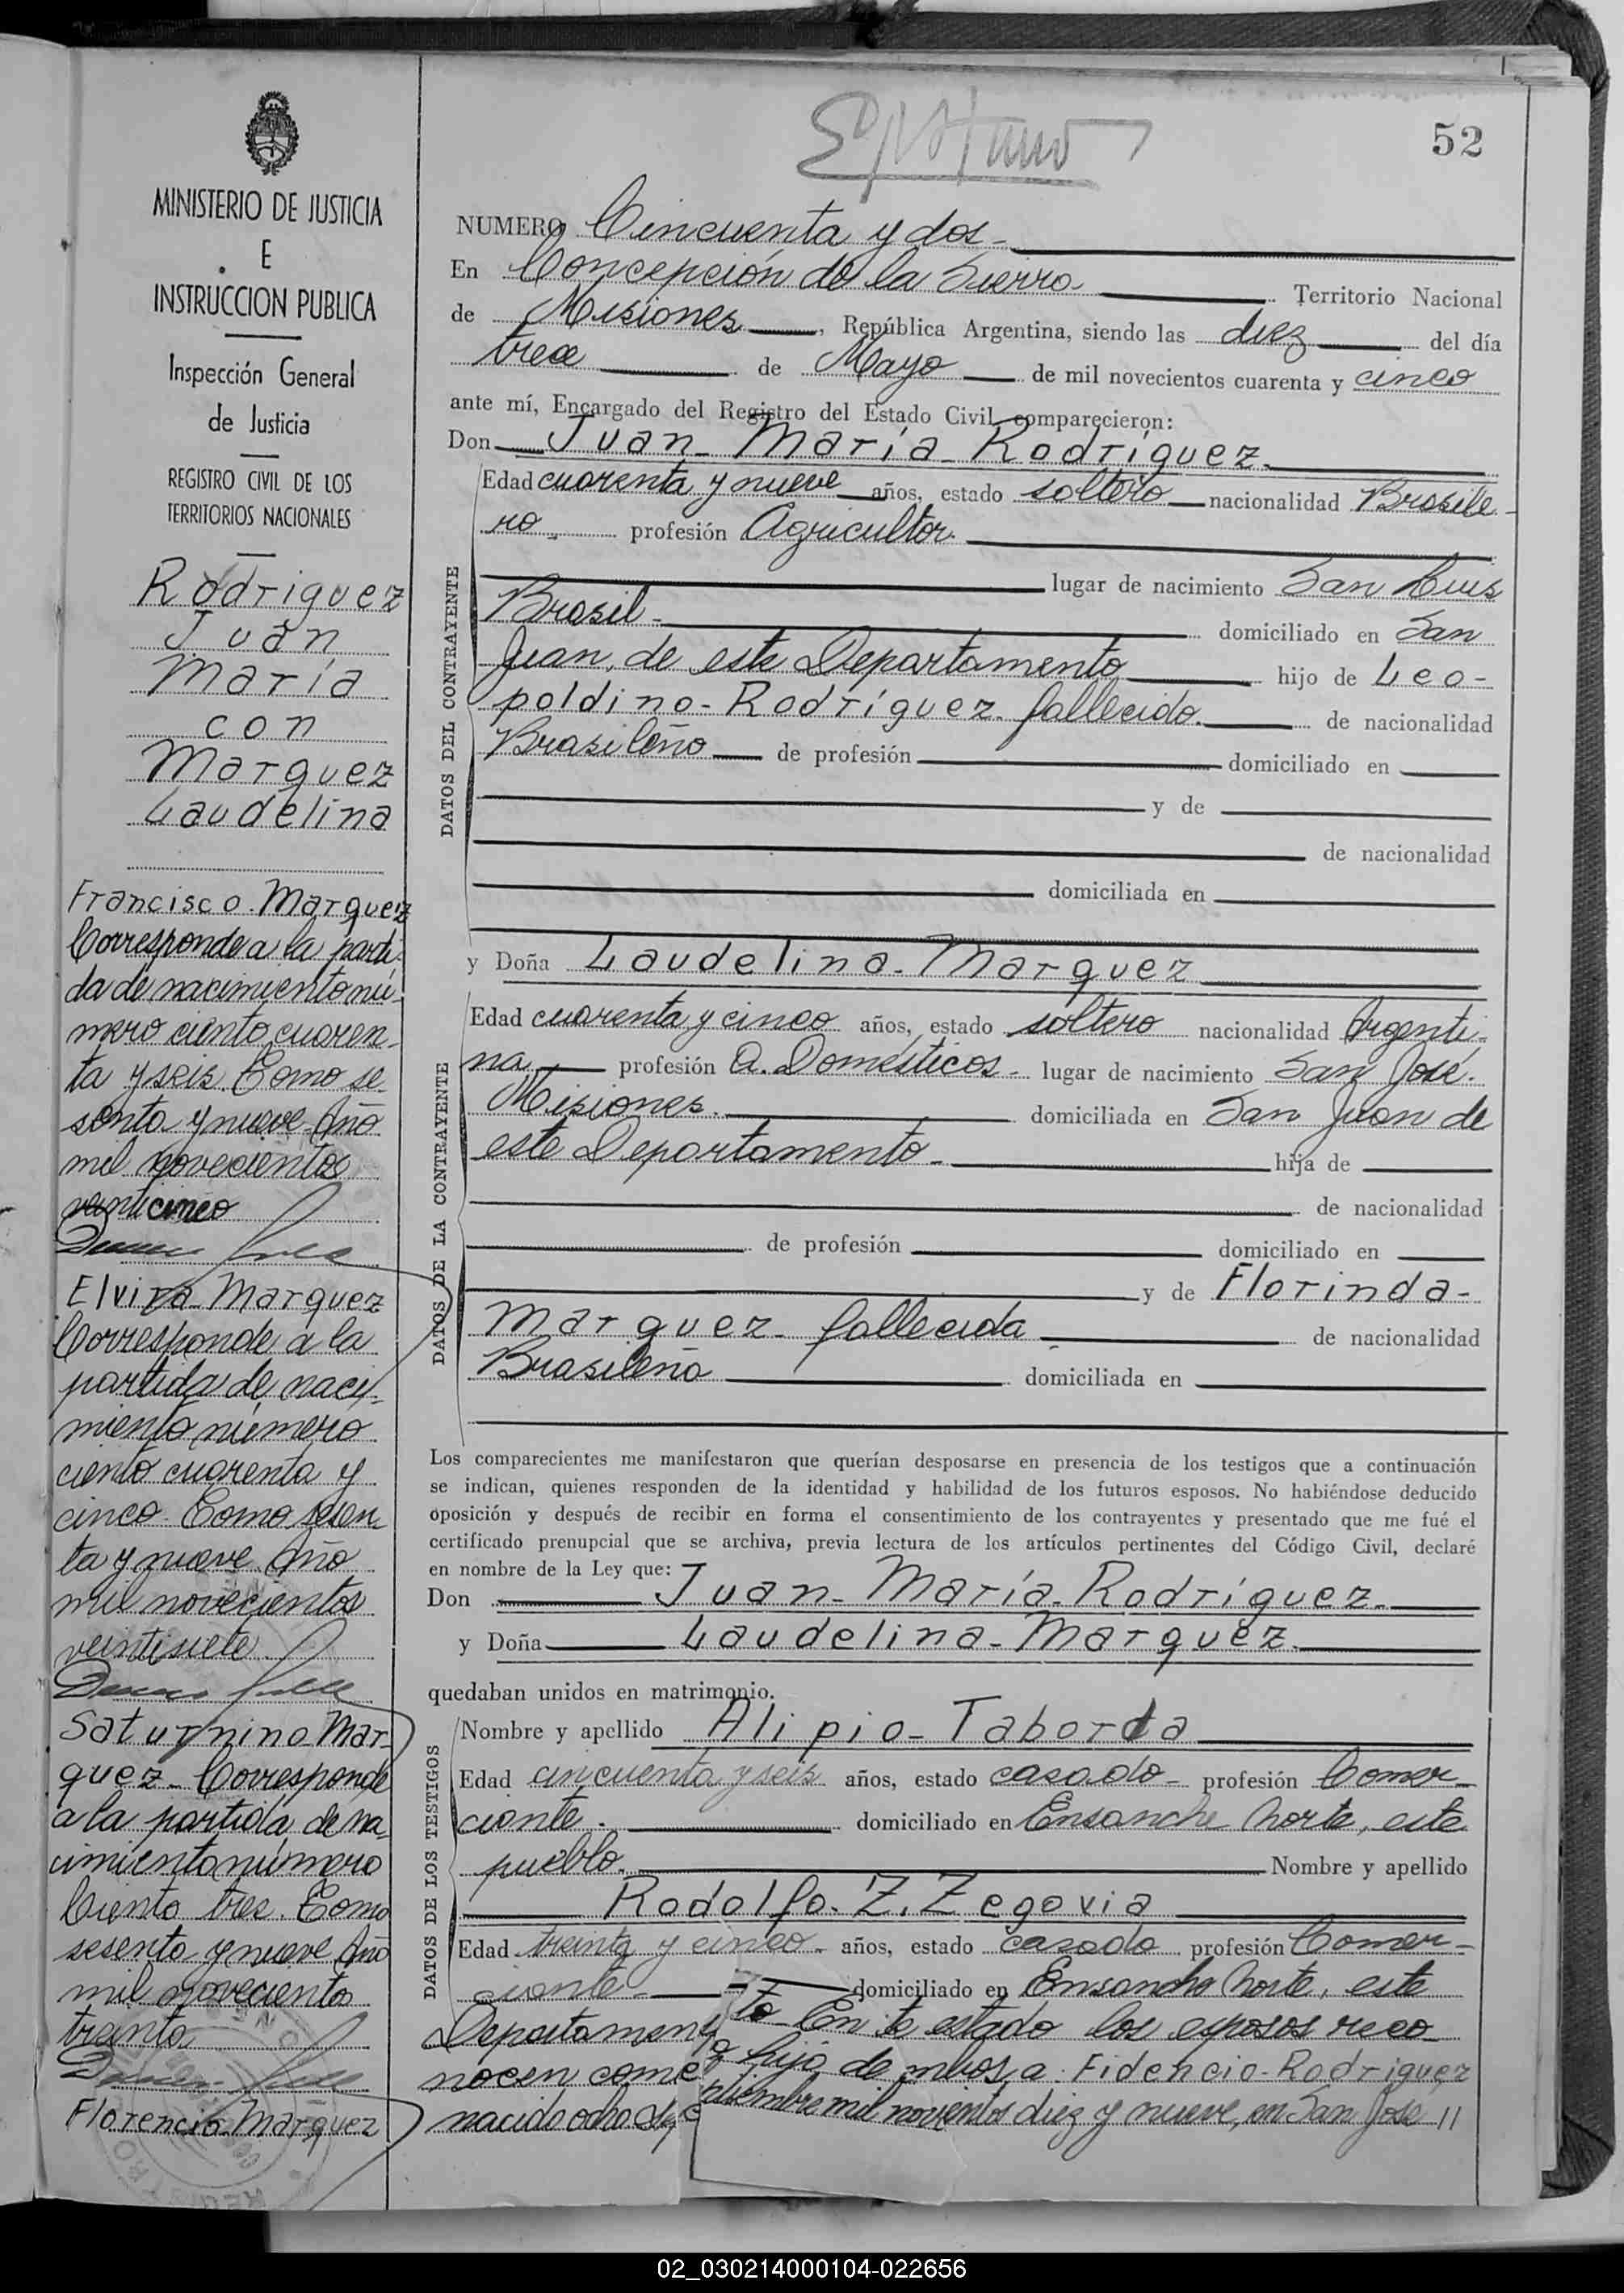 52
MINISTERIO DE JUSTICIA
E
INSTRUCCION PUBLICA
Inspección General
de Justicia
REGISTRO CIVIL DE LOS
TERRITORIOS NACIONALES
Rodriguez
Juan
María
con
Marquez
Laudelina
Francisco. Marquez
Corresponde a la parti-
da de nacimiento nú-
mero ciento cuaren-
ta y seis. Tomo se-
senta y nueve. Año
mil novecientos
veinticinco
Elvira Marquez
Corresponde a la
partida de naci-
miento número
ciento cuarenta y
cinco. Tomo sesen-
ta y nueve. Año
mil novecientos
veintisiete.
Saturnino Mar-
quez. Corresponde
a la partida de na-
cimiento número
Ciento tres. Tomo
sesenta y nueve Año
mil novecientos
treinta
Florencia. Marquez
NUMERO Cincuenta y dos-
En Concepción de la Sierra- Territorio Nacional
de Misiones, República Argentina, siendo las diez del día
trece de Mayo de mil novecientos cuarenta y cinco
ante mí, Encargado del Registro del Estado Civil comparecieron:
Don Juan- María- Rodríguez.
DATOS DEL CONTRAYENTE
Edad cuarenta y nueve años, estado soltero nacionalidad Brasile-
ro. profesión Agricultor.
lugar de nacimiento San Luis
Brasil- domiciliado en San
Juan, de este Departamento hijo de Leo-
poldino- Rodríguez. fallecido. de nacionalidad
Brasileño de profesión domiciliado en
y de
de nacionalidad
domiciliada en
y Doña Laudelina- Marquez
DATOS DE LA CONTRAYENTE
Edad cuarenta y cinco años, estado soltero nacionalidad Argenti-
na profesión Q. Domésticos- lugar de nacimiento San José.
Misiones. domiciliada en San Juan de
este Departamento- hija de
de nacionalidad
de profesión domiciliado en
y de Florinda-
Marquez- fallecida de nacionalidad
Brasileña domiciliada en
Los comparecientes me manifestaron que querían desposarse en presencia de los testigos que a continuación
se indican, quienes responden de la identidad y habilidad de los futuros esposos. No habiéndose deducido
oposición y después de recibir en forma el consentimiento de los contrayentes y presentado que me fué el
certificado prenupcial que se archiva, previa lectura de los artículos pertinentes del Código Civil, declaré
en nombre de la Ley que:
Don Juan- María- Rodríguez.
y Doña Laudelina- Marquez.
quedaban unidos en matrimonio.
DATOS DE LOS TESTIGOS
Nombre y apellido Alipio- Taborda
Edad cincuenta y seis años, estado casado- profesión Comer-
ciante. domiciliado en Ensanche Norte, este
pueblo. Nombre y apellido
Rodolfo. Z. Zegovia
Edad treinta y cinco- años, estado casado profesión Comer-
ciante- domiciliado en Ensanche Norte, este
Departamento- En te estado los esposos reco-
nocen como hijo de mbos a Fidencio- Rodriguez
nacido ocho septiembre mil novientos diez y nueve, en San Jose
02_030214000104-022656